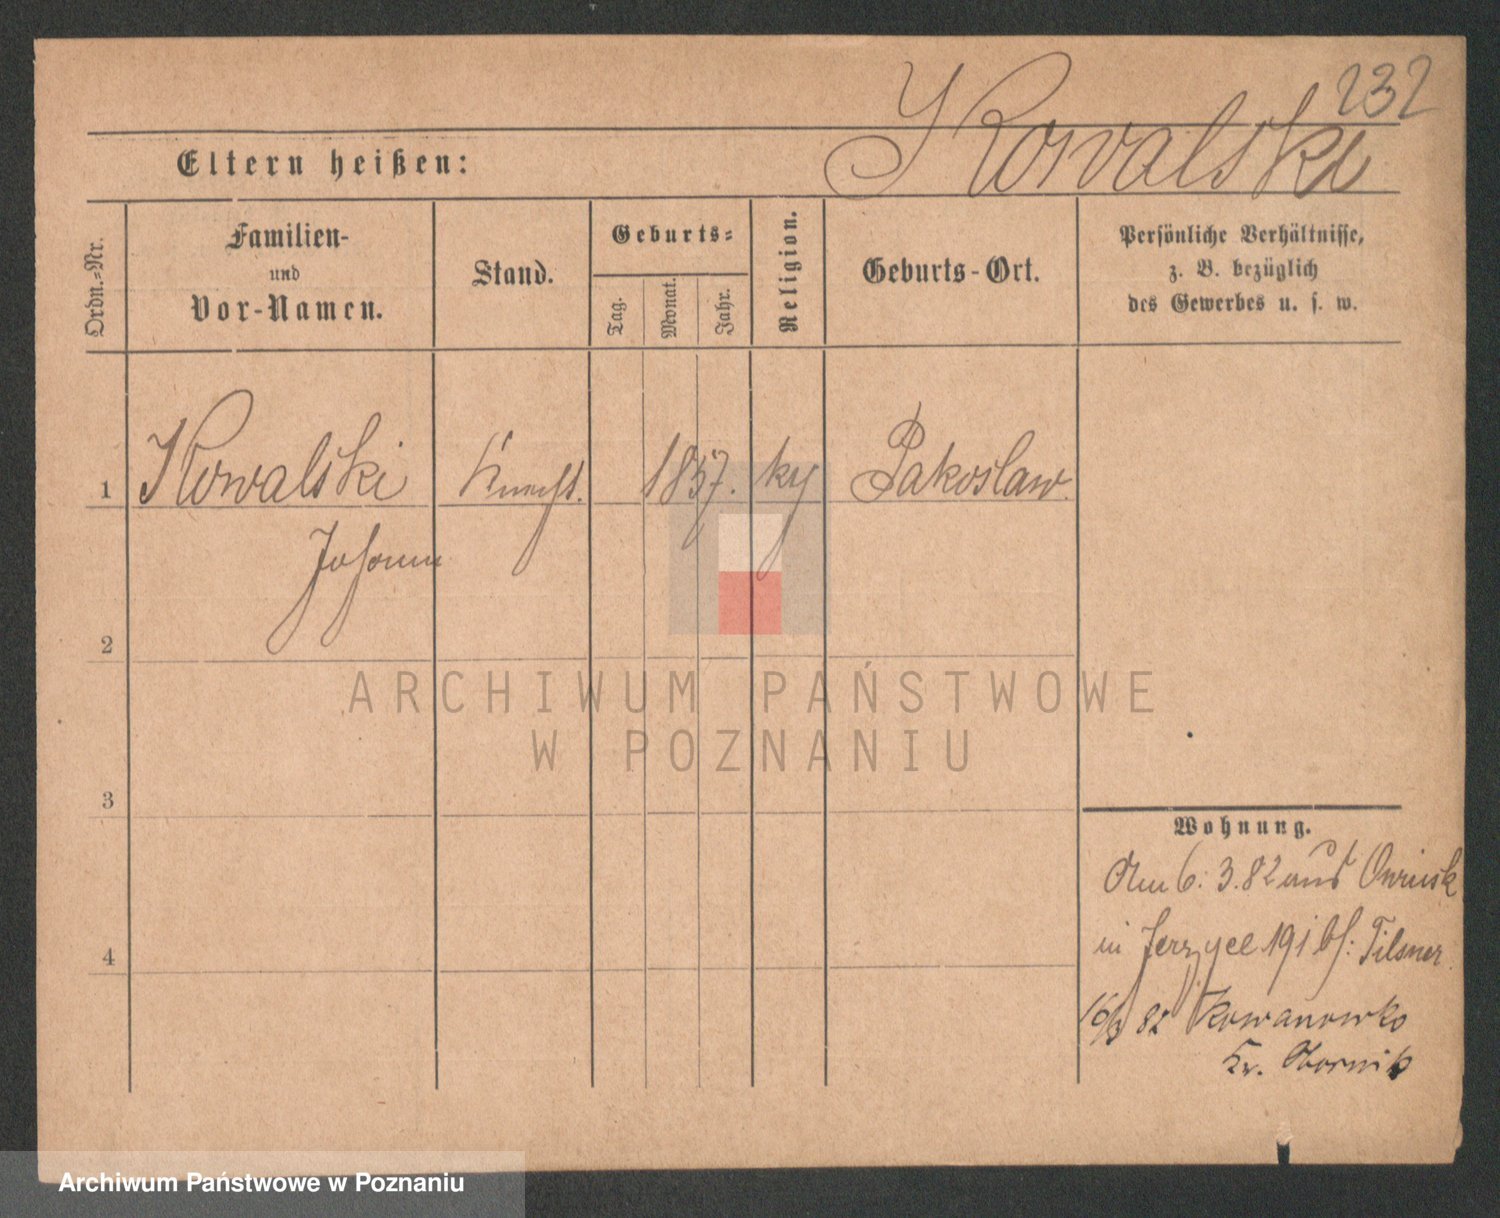 232
Kowalski
Eltern heißen:
Ordn.-Nr.
Familien-
und
Vor-Namen.
Stand.
Geburts-
Tag.
Monat.
Jahr.
Religion.
Geburts-Ort.
Persönliche Verhältnisse,
z. B. bezüglich
des Gewerbes u. s. w.
1 Kowalski Knecht. 1857. kg Pakoslaw.
Johann
2
3
4
Wohnung.
Am 6. 3. 82 aus
in Jerzyce 191 bf: Tilsner.
16/3 82 Kowanowko
Kr. Obornik
ARCHIWUM PAŃSTWOWE
W POZNANIU
Archiwum Państwowe w Poznaniu